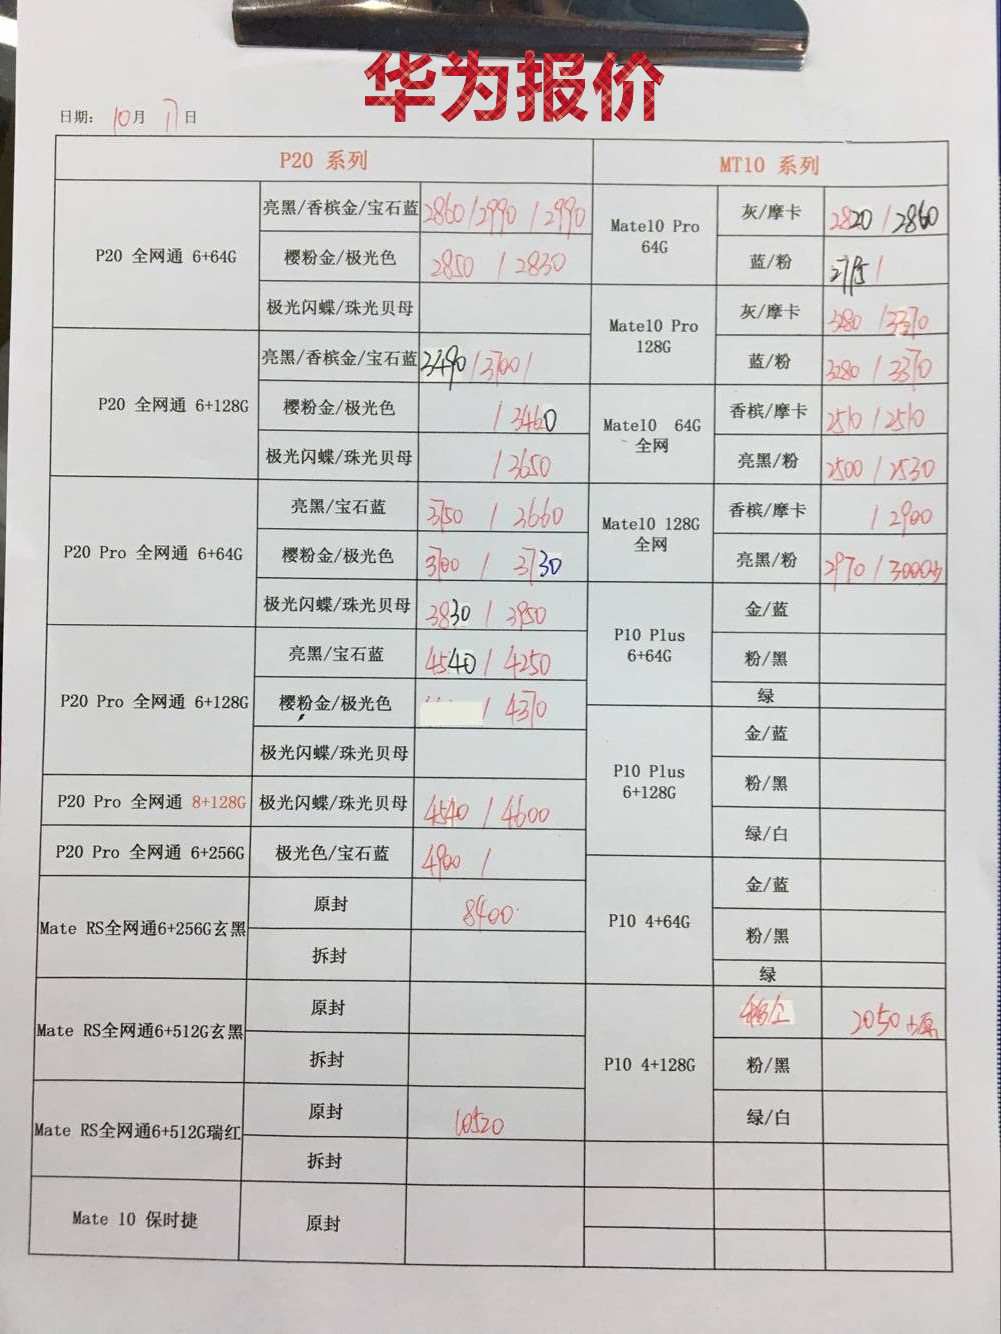 华为报价
日期: 10月 7日
P20 系列
P20 全网通 6+64G
亮黑/香槟金/宝石蓝 2860/2990/2990
樱粉金/极光色 2850/2830
极光闪蝶/珠光贝母
P20 全网通 6+128G
亮黑/香槟金/宝石蓝 3490/3700/
樱粉金/极光色 /3460
极光闪蝶/珠光贝母 /3650
P20 Pro 全网通 6+64G
亮黑/宝石蓝 3750/3660
樱粉金/极光色 3700/3730
极光闪蝶/珠光贝母 3830/3950
P20 Pro 全网通 6+128G
亮黑/宝石蓝 4540/4250
樱粉金/极光色 /4370
极光闪蝶/珠光贝母
P20 Pro 全网通 8+128G
极光闪蝶/珠光贝母 4540/4600
P20 Pro 全网通 6+256G
极光色/宝石蓝 4900/
Mate RS全网通6+256G玄黑
原封 8400
拆封
Mate RS全网通6+512G玄黑
原封
拆封
Mate RS全网通6+512G瑞红
原封 10520
拆封
Mate 10 保时捷
原封
MT10 系列
Mate10 Pro
64G
灰/摩卡 2820/2860
蓝/粉
Mate10 Pro
128G
灰/摩卡 3280/3370
蓝/粉 3280/3370
Mate10 64G
全网
香槟/摩卡 2510/2510
亮黑/粉 2500/2530
Mate10 128G
全网
香槟/摩卡 /2900
亮黑/粉 2970/3000
P10 Plus
6+64G
金/蓝
粉/黑
绿
P10 Plus
6+128G
金/蓝
粉/黑
绿/白
P10 4+64G
金/蓝
粉/黑
绿
P10 4+128G
2050
粉/黑
绿/白